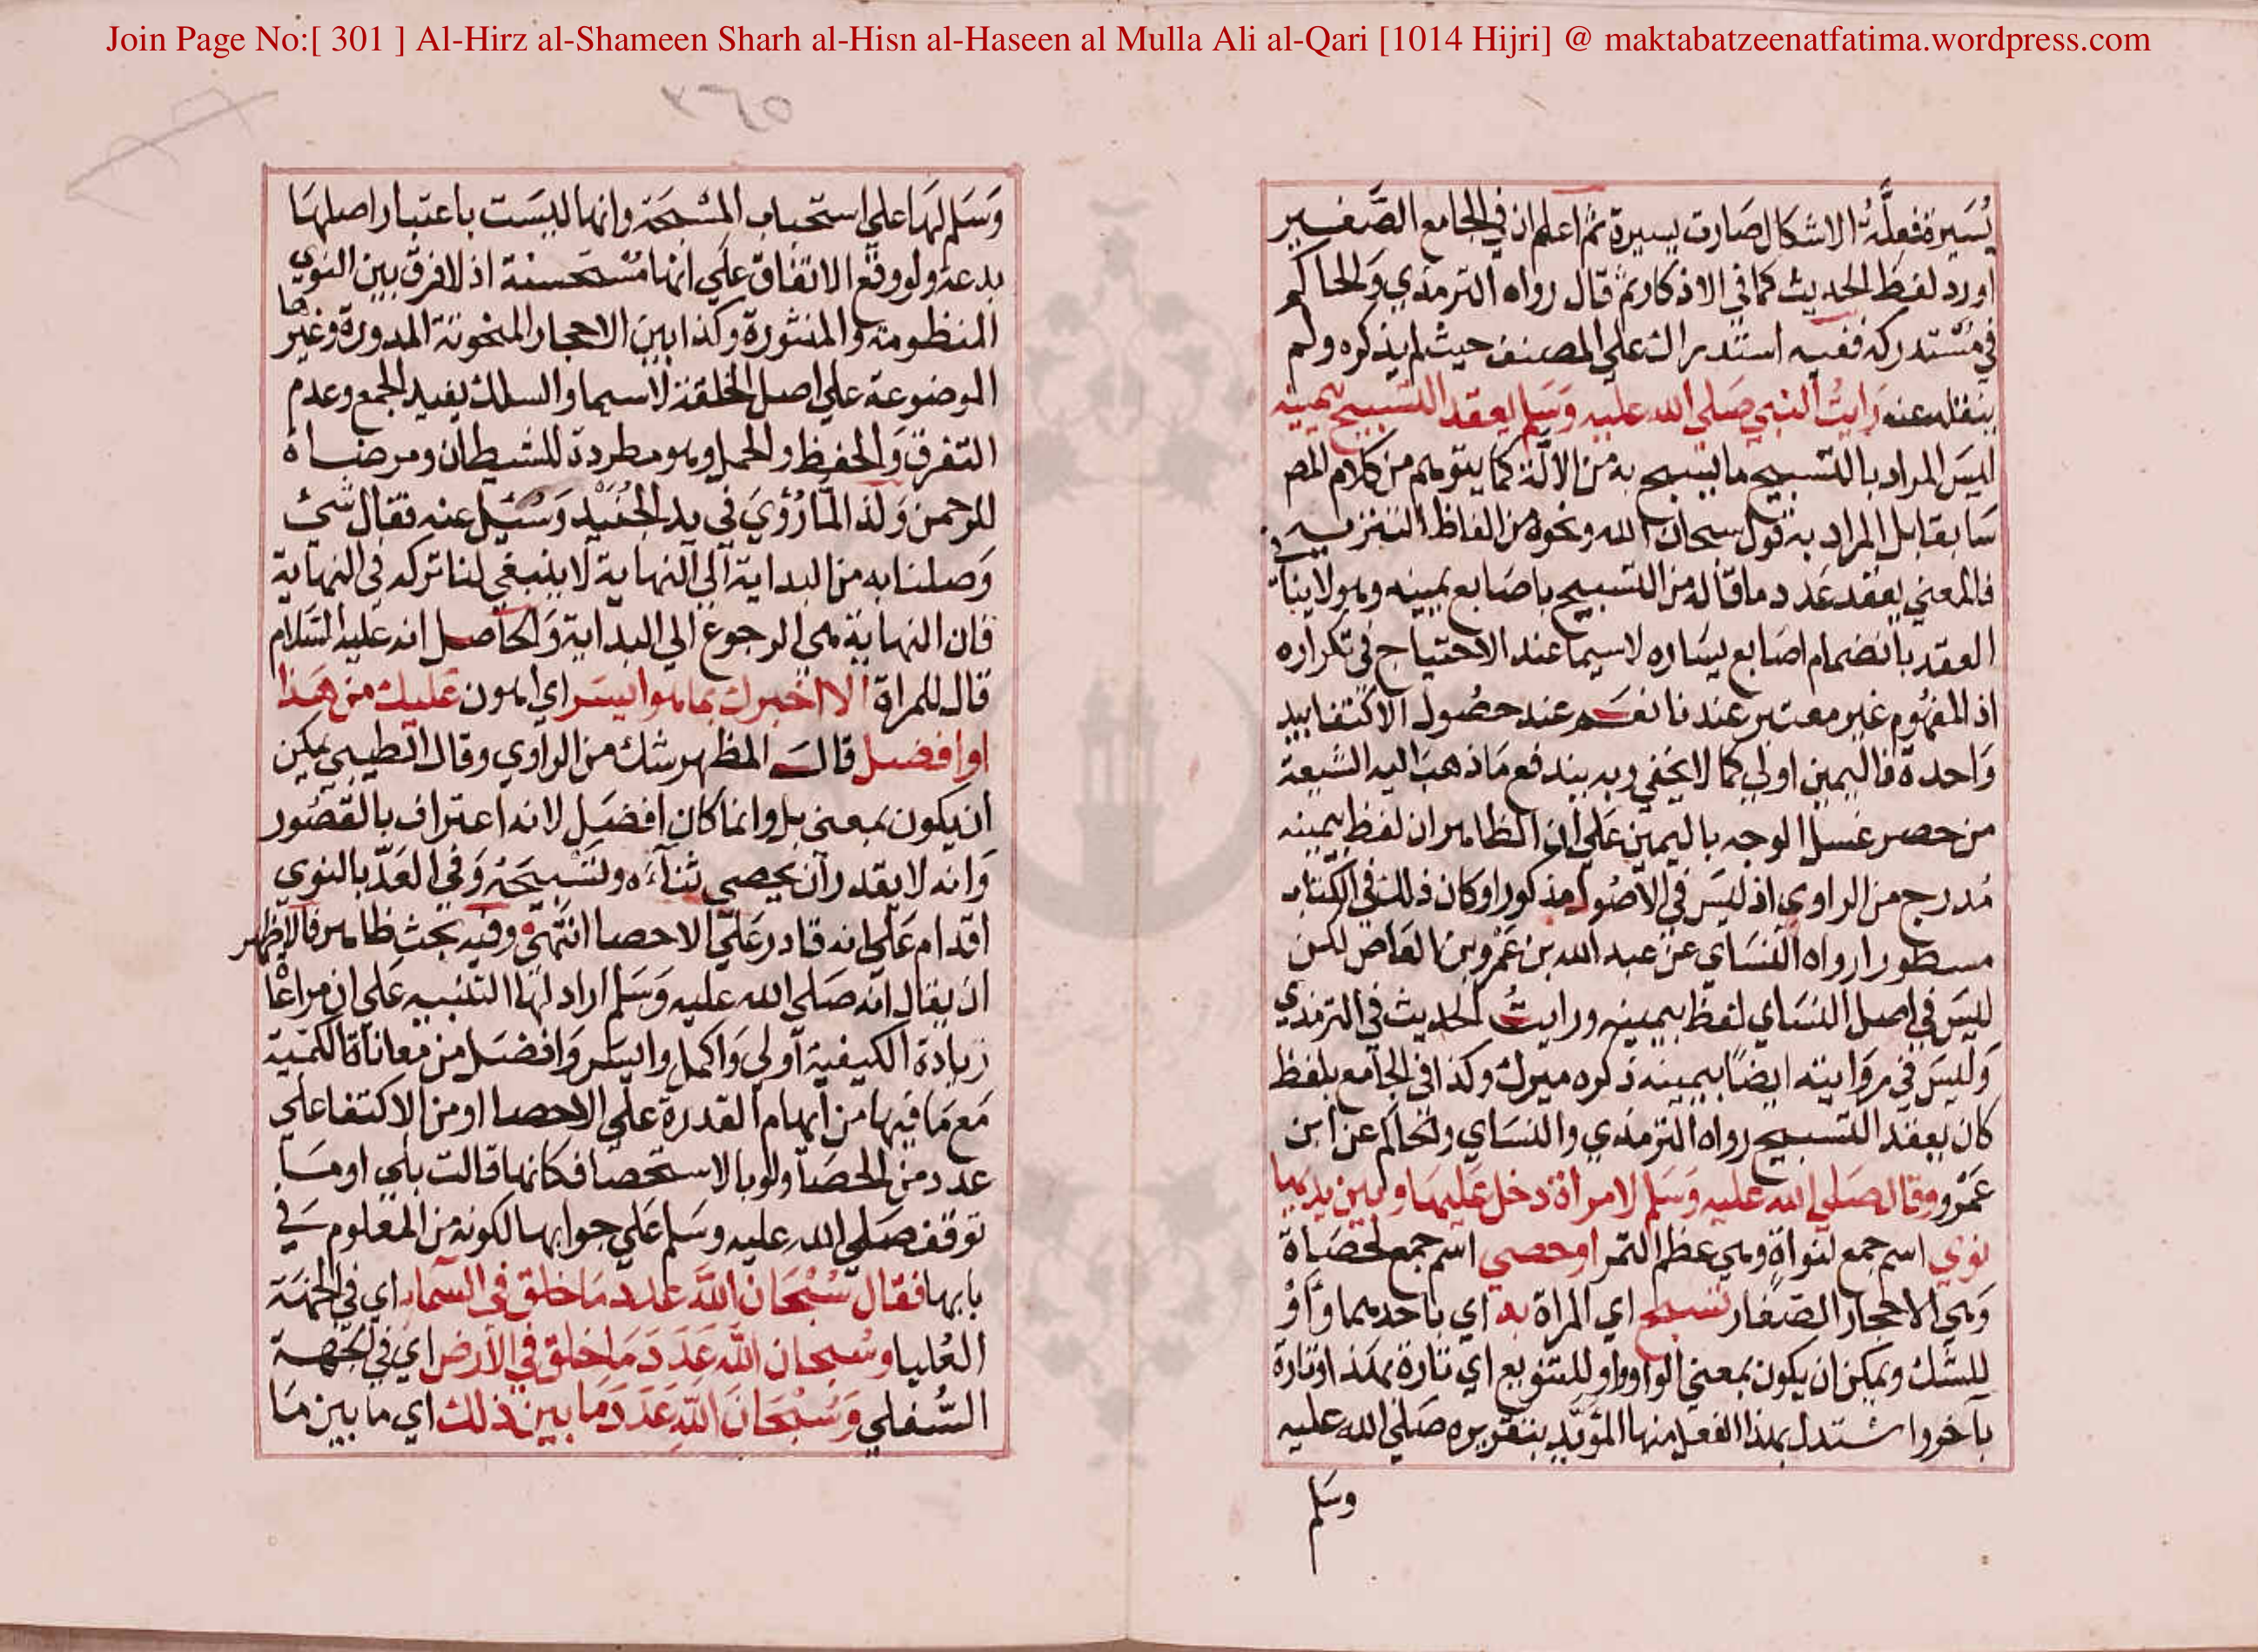 Join Page No:[ 301 ] Al-Hirz al-Shameen Sharh al-Hisn al-Haseen al Mulla Ali al-Qari [1014 Hijri] @ maktabatzeenatfatima.wordpress.com
٣٦٥
يُسَيرة فعلَّة الاشكال صَارت يسيرة ثم اعلم ان في الجامع الصَّغير
اورد لفظ الحديث كما في الاذكار ثم قال رواه الترمذي وَالحاكم
في مُسْتدركه ففيه استدراك علي المصنف حيث لم يذكره ولم
ينقله عنه رَايتُ النبي صَلي الله عليه وَسَلم يعقد التسبيح بيمينه
ليسَ المراد بالتسبيح ما يسَبح به من الالة كما يتوهم من كلام المص
سَابقا بل المراد به قول سبحان الله ونحوه من الفاظ التنزيه
فالمعني يعقد عَدد ما قاله من التسبيح باصَابع يمينه وهو لا ينافي
العقد بانضمام اصَابع يسَاره لاسيما عند الاحتياج في تكراره
اذ المفهُوم غير معتبر عندنا نعَم عند حصُول الاكتفا بيد
وَاحدة فاليمين اولي كما لا يخفي وبه يندفع مَا ذهبَ اليه الشيعة
من حصر غسل الوجه باليمين عَلي ان الظاهر ان لفظ بيمينه
مُدرج من الراوي اذ ليسَ في الاصُول مذكورا وكان ذلك في الكتاب
مسطورا رواه النسَاي عن عبد الله بن عَمْرو بن العَاص لكن
ليسَ في اصل النسَاي لفظ بيمينه ورايتُ الحديث في الترمذي
وَليسَ في رِوَايته ايضًا بيمينه ذكره ميرك وكذا في الجامع بلفظ
كان يعقد التسبيح رواه الترمذي والنسَاي والحاكم عن ابن
عَمْرو وقال صَلي الله عليه وَسَلم لامراة دخل عَليهَا وبين يديهَا
نوي اسم جمع لنواةٍ وهي عظم التمر اوحصي اسم جمع لحصَاة
وَهي الاحجار الصّغار تسبح اي المراة به اي باحدهما وَاَوْ
للشك ويمكن ان يكون بمعني الواو واو للتنويع اي تارة بهذا وتارة
بآخر واستدل بهذا الفعل منها المؤيّد بتقريره صَلي الله عليه
وسَلم
وَسَلم لهَا علي استحباب المسْبحَة وانها ليسَت باعتبار اصلهَا
بدعة ولو وقع الاتفاق عَلي انها مُسْتحسنة اذ لا فرق بين النوي
المنظومة والمنثورة وكذا بين الاحجار المنحوتة المدورة وغيرها
الموضوعة علي اصل الخلقة لاسيما والسلك يفيد الجمع وعدم
التفرق وَالحفظ والحمل وهو مطردة للشيطان ومرضاة
للرحمن وَلذا لمّا رُؤيَ في يد الجُنَيْد وَسُئِل عنه فقال شئ
وَصلنا به من البداية الي النهاية لا ينبغي لنا تركه في النهاية
فان النهاية هي الرجوع الي البداية وَالحاصل انه عليه السَّلام
قال للمراة الا اخبرك بما هو ايسَر اي اهون عَليك من هَذا
اوافضل قالَ المظهر شك من الراوي وقال الطيبي يمكن
ان يكون بمعني بل وانما كان افضَل لانه اعتراف بالقصُور
وَانه لا يقدر اَن يحصي ثناءَه وتسْبيحَهُ وَفي العَدّ بالنوي
اقدام عَلي انه قادر عَلي الاحصا انتهي وفيه بحث ظاهر فالاظهر
ان يقال انه صَلي الله عليه وَسَلم اراد لهَا التنبيه عَلي ان مراعَاة
زيادة الكيفية اَولي وَاكمل وايسَر وَافضَل من معاناة الكميّة
مَع مَا فيهَا من ايهام القدرة علي الاحصا او من الاكتفا علي
عدد من الحصَا ولو بالاستحصا فكانها قالت بلي او مَا
توقف صَلي الله عليه وسَلم عَلي جوابها لكونه من المعلوم في
بابها فقال سُبْحَان اللّه عَدد مَا خلق في السّماء اي في الجهَة
العُليا وسُبحان اللّه عَدَدَ مَا خلق في الاَرْض اي في الجهة
السُّفلي وَسُبْحَانَ اللّهِ عَدَدَ مَا بين ذلك اي ما بين مَا